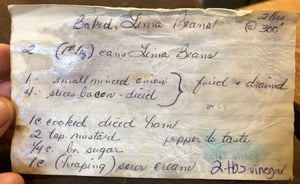 Baked Lima Beans 2 hrs
@ 300°
2 (1# ) cans Lima Beans
1 - small minced onion } fried & drained
4 - slices bacon - diced
1c cooked diced ham
2 tsp. mustard pepper to taste
1/4 c. br. sugar
1c (heaping) sour cream 2 tbs vinegar